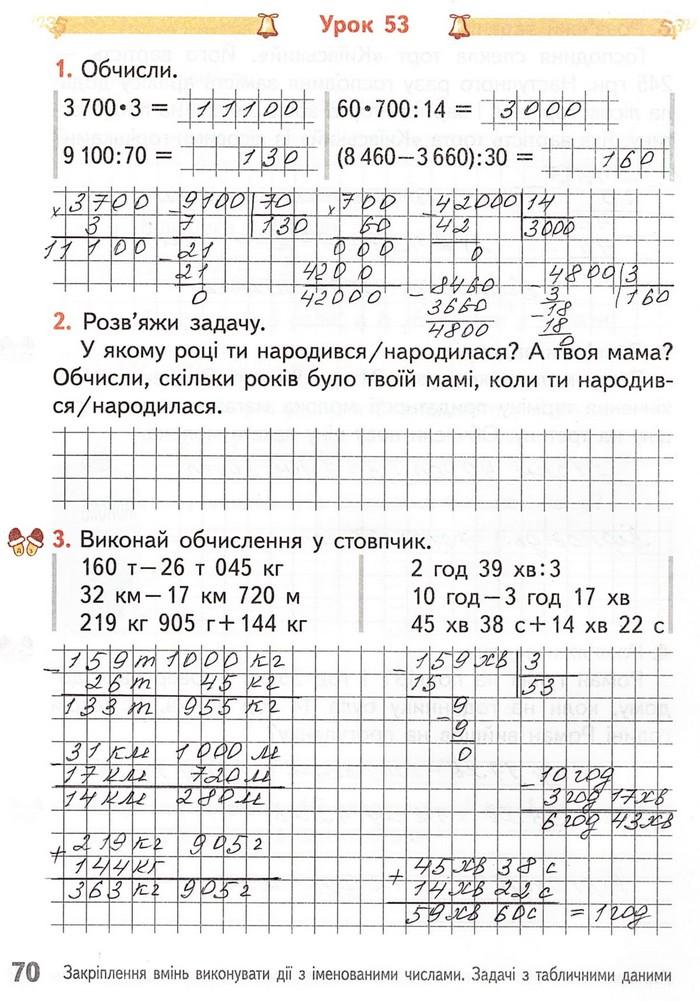 Урок 53
1. Обчисли.
3 700•3 = 11100 60•700:14 = 3000
9 100:70 = 130 (8 460−3 660):30 = 160
× 3700 − 9100 70 × 700 − 42000 14
3 7 130 60 42 3000
11100 − 21 000 0
21 4200 − 8460 − 4800 3
0 42000 3660 3 160
4800 − 18
18
0
2. Розв’яжи задачу.
У якому році ти народився/народилася? А твоя мама?
Обчисли, скільки років було твоїй мамі, коли ти народив-
ся/народилася.
3. Виконай обчислення у стовпчик.
160 т−26 т 045 кг 2 год 39 хв:3
32 км−17 км 720 м 10 год−3 год 17 хв
219 кг 905 г+144 кг 45 хв 38 с+14 хв 22 с
− 159т 1000 кг − 159 хв 3
26т 45 кг 15 53
133 т 955 кг − 9
9
0
− 31 км 1000 м
17 км 720 м − 10 год
14 км 280 м 3 год 17 хв
6 год 43 хв
+ 219 кг 905 г
144 кг + 45 хв 38 с
363 кг 905 г 14 хв 22 с
59 хв 60 с = 1 год
70 Закріплення вмінь виконувати дії з іменованими числами. Задачі з табличними даними